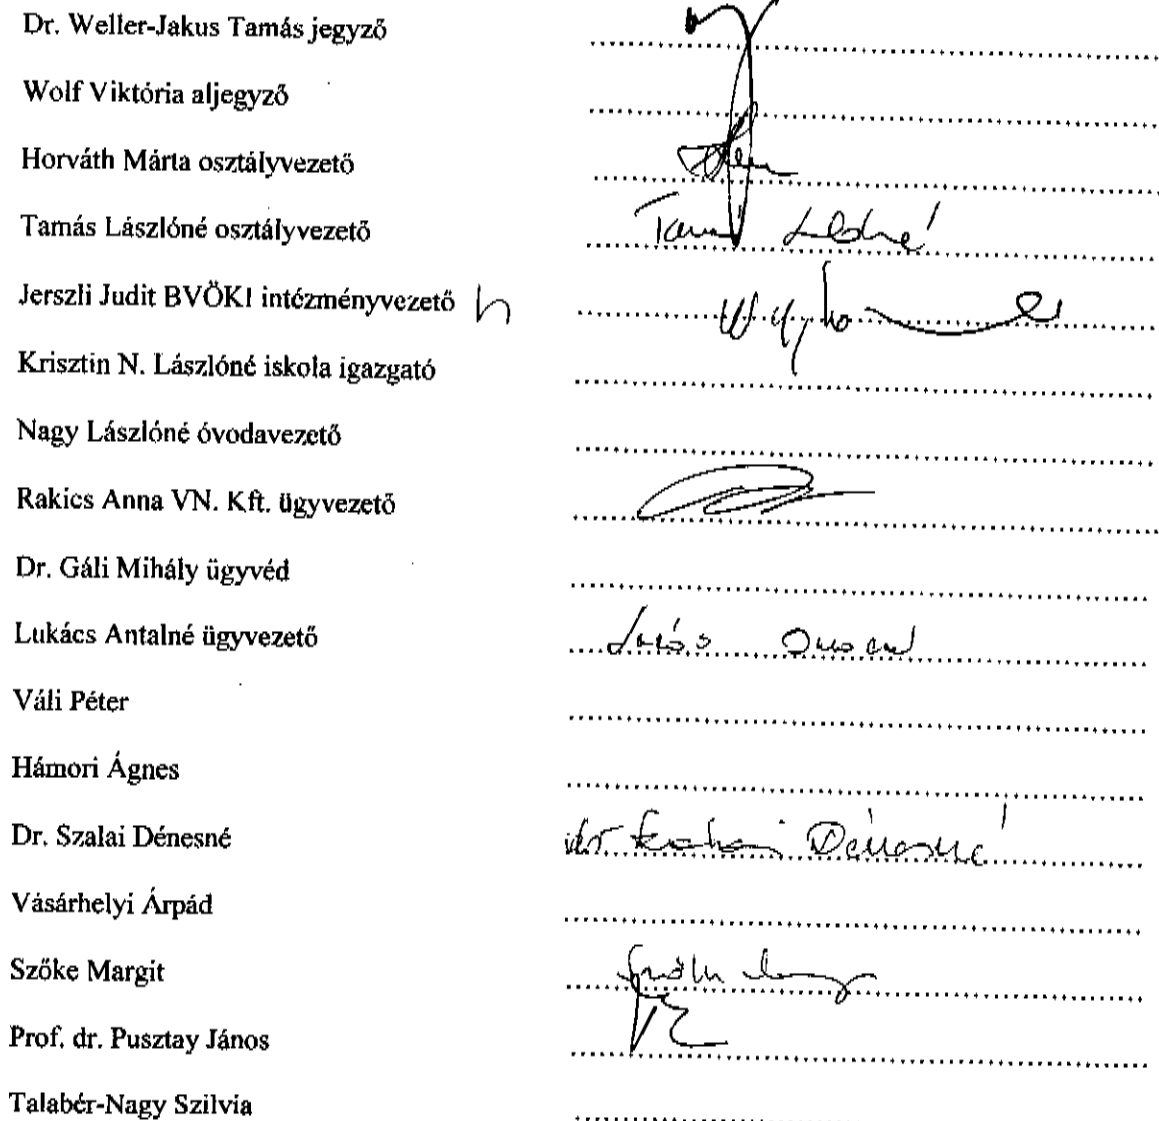 Dr. Weller-Jakus Tamás jegyző
Wolf Viktória aljegyző
Horváth Márta osztályvezető
Tamás Lászlóné osztályvezető
Jerszli Judit BVÖKI intézményvezető h
Krisztin N. Lászlóné iskola igazgató
Nagy Lászlóné óvodavezető
Rakics Anna VN. Kft. ügyvezető
Dr. Gáli Mihály ügyvéd
Lukács Antalné ügyvezető
Váli Péter
Hámori Ágnes
Dr. Szalai Dénesné dr Szalai Dénesné
Vásárhelyi Árpád
Szőke Margit
Prof. dr. Pusztay János
Talabér-Nagy Szilvia